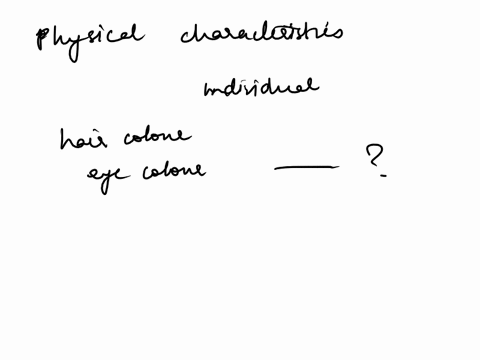 Physical characteristics
individual
hair colour
eye colour ——— ?